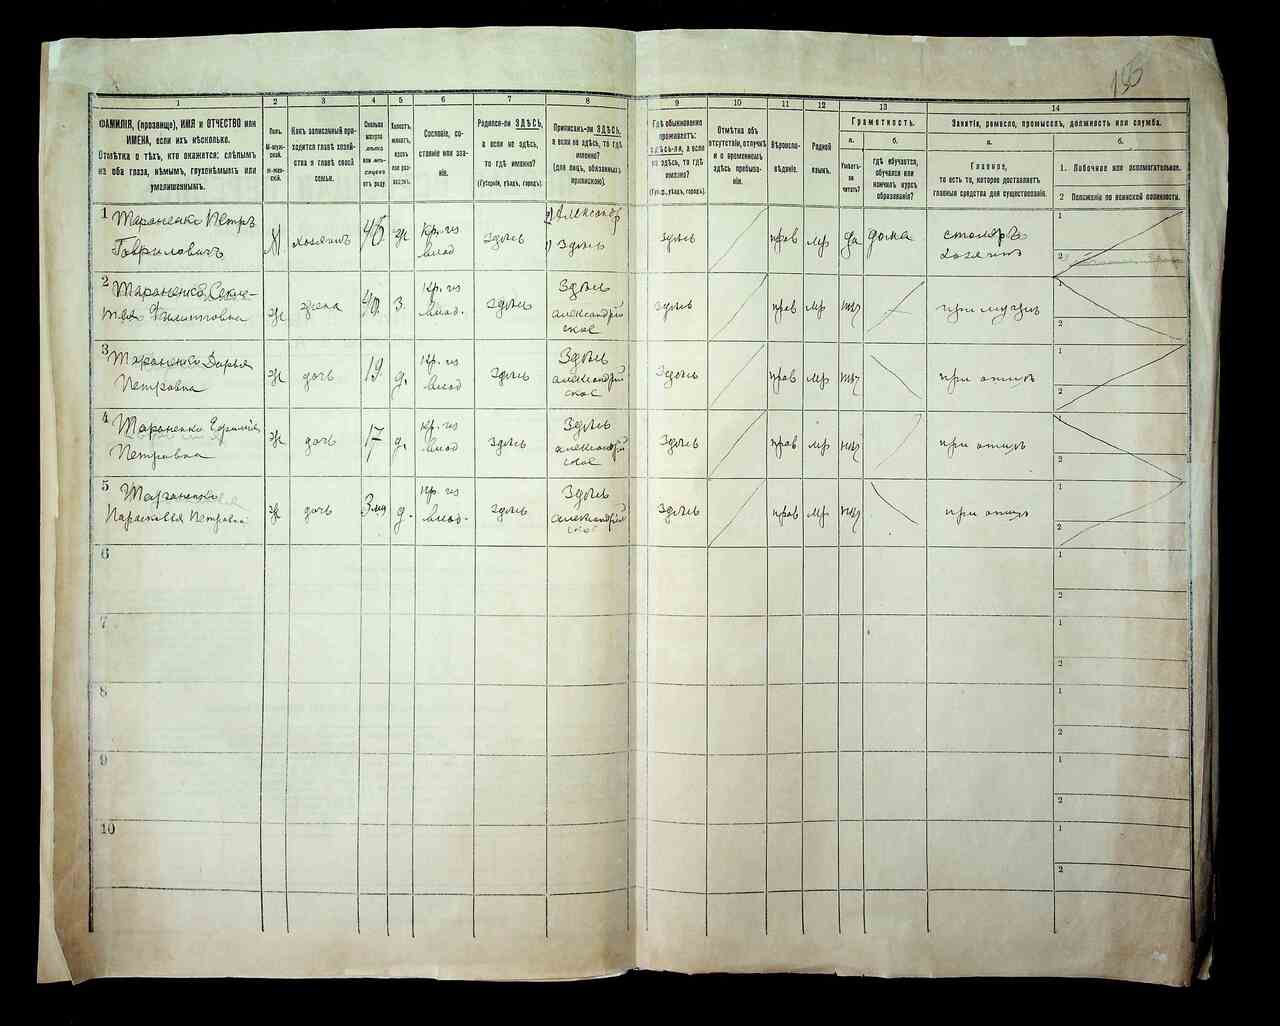 155
1 2 3 4 5 6 7 8 9 10 11 12 13 14
ФАМИЛІЯ, (прозвище), ИМЯ и ОТЧЕСТВО или
ИМЕНА, если ихъ нѣсколько.
Отмѣтка о тѣхъ, кто окажется: слѣпымъ
на оба глаза, нѣмымъ, глухонѣмымъ или
умалишеннымъ.
Полъ.
М-муж-
ской.
Ж-жен-
скій.
Какъ записанный при-
ходится главѣ хозяй-
ства и главѣ своей
семьи.
Сколько
минуло
лѣтъ
или мѣ-
сяцевъ
отъ роду.
Холостъ,
женатъ,
вдовъ
или раз-
веденъ.
Сословіе, со-
стояніе или зва-
ніе.
Родился-ли ЗДѢСЬ,
а если не здѣсь,
то гдѣ именно?
(Губернія, уѣздъ, городъ).
Приписанъ-ли ЗДѢСЬ,
а если не здѣсь, то гдѣ
именно?
(для лицъ, обязанныхъ
припискою).
Гдѣ обыкновенно
проживаетъ:
здѣсь-ли, а если
не здѣсь, то гдѣ
именно?
(Губ., уѣздъ, городъ).
Отмѣтка объ
отсутствіи, отлучкѣ
и о временномъ
здѣсь пребыва-
ніи.
Вѣроиспо-
вѣданіе.
Родной
языкъ.
Грамотность.
а. б.
Умѣетъ-
ли
читать?
гдѣ обучается,
обучался или
кончилъ курсъ
образованія?
Занятіе, ремесло, промыселъ, должность или служба.
а. б.
Главное,
то есть то, которое доставляетъ
главныя средства для существованія.
1. Побочное или вспомогательное.
2 Положеніе по воинской повинности.
1 Тараненко Петръ
Гавриловичъ
М хозяинъ ж кр. из
влад здѣсь 2) Александр
1) Здѣсь
здѣсь прав мр да дома столяръ
хозяинъ
1
2
2 Тараненко
Филипповна
ж жена 40 з. кр. из
влад. здѣсь Здѣсь
александрій
ское
здѣсь прав мр при мужѣ
1
2
3 Тараненко Дарья
Петровна
ж дочь 19 д. кр. из
влад здѣсь Здѣсь
александрій
ское
Здѣсь прав мр при отцѣ
1
2
4 Тараненко
Петровна
ж дочь 17 д. кр. из
влад здѣсь Здѣсь
александрій
ское
Здѣсь прав мр при отцѣ
1
2
5 Тараненко
Парасковья Петровна
ж дочь д. кр. из
влад. здѣсь Здѣсь
александрій
ское
Здѣсь прав мр при отцѣ
1
2
6
1
2
7
1
2
8
1
2
9
1
2
10
1
2